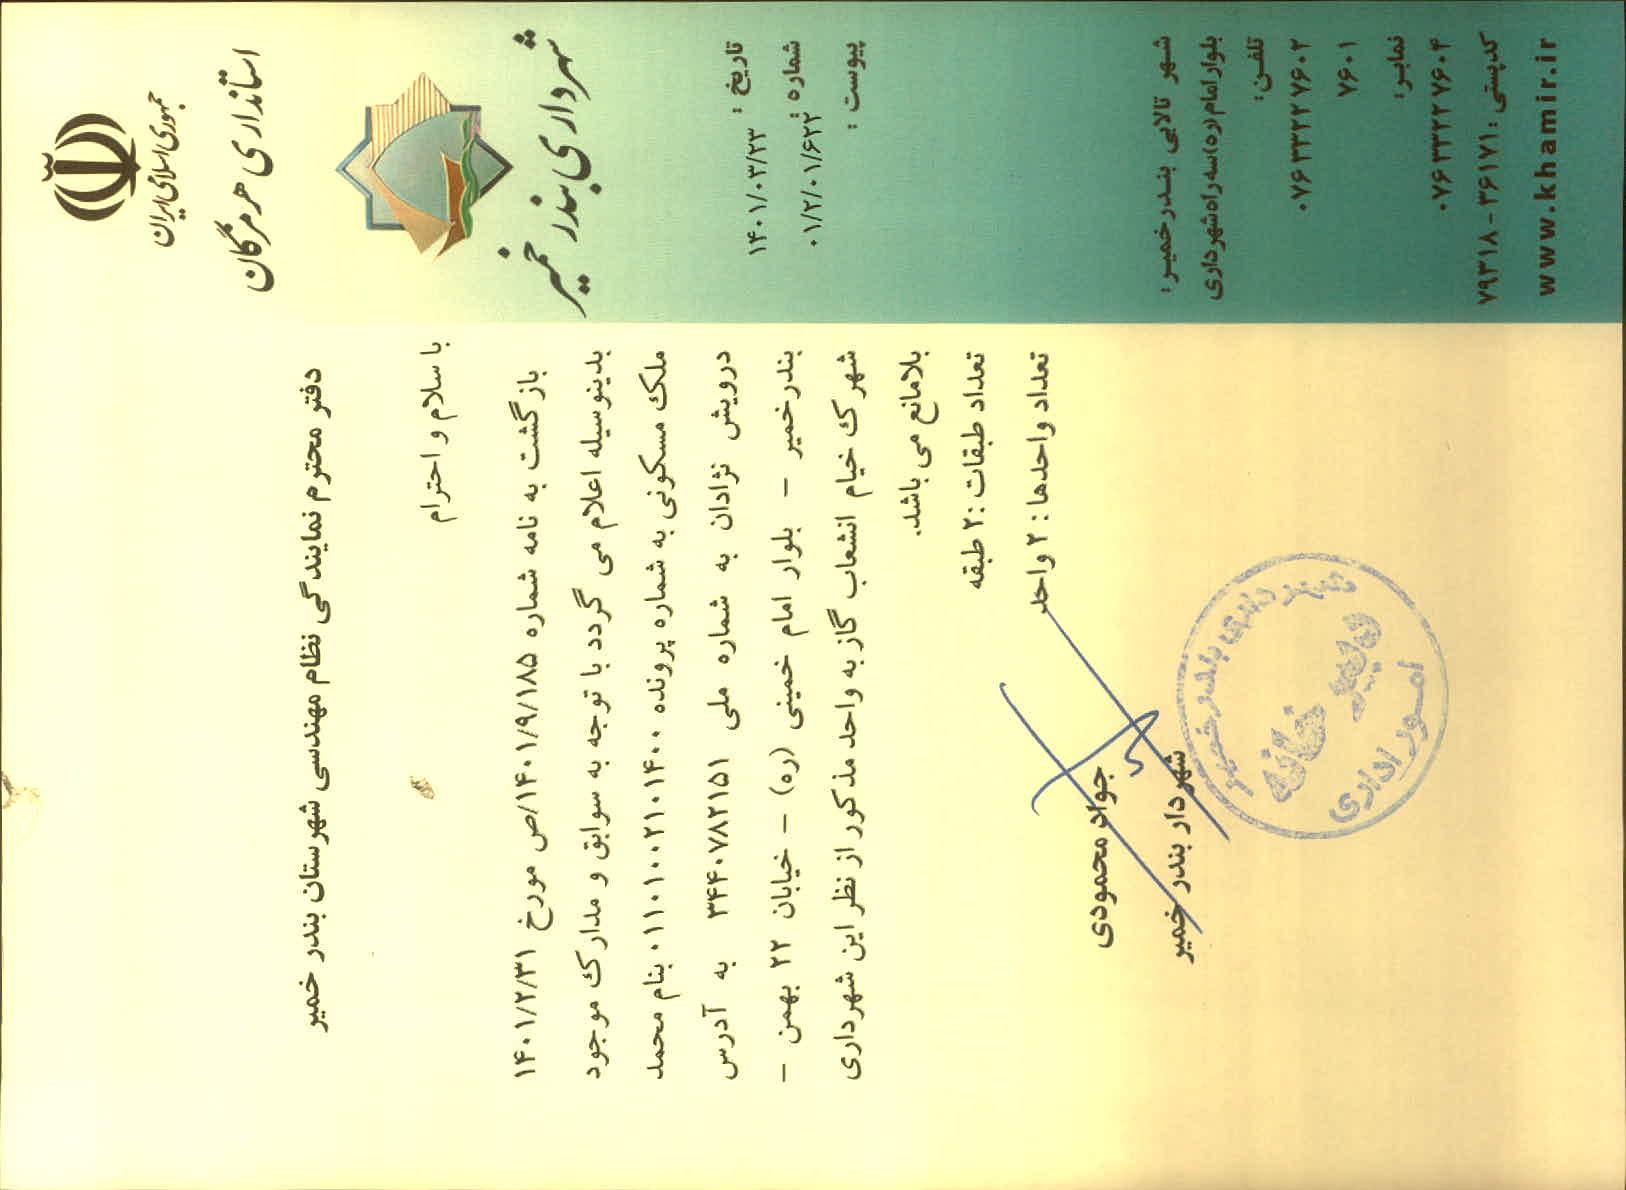 جمهوری اسلامی ایران
استانداری هرمزگان
شهرداری بندر خمیر
تاریخ : ۱۴۰۱/۰۳/۲۳
شماره : ۰۱/۲/۰۱/۶۲۲
پیوست :
دفتر محترم نمایندگی نظام مهندسی شهرستان بندر خمیر
با سلام و احترام
بازگشت به نامه شماره ۱۴۰۱/۹/۱۸۵/ص مورخ ۱۴۰۱/۲/۳۱
بدینوسیله اعلام می گردد با توجه به سوابق و مدارک موجود
ملک مسکونی به شماره پرونده ۰۱۱۰۱۰۰۲۱۰۱۴۰۰ بنام محمد
درویش نژادان به شماره ملی ۳۴۴۰۷۸۲۱۵۱ به آدرس
بندرخمیر - بلوار امام خمینی (ره) - خیابان ۲۲ بهمن -
شهرک خیام انشعاب گاز به واحد مذکور از نظر این شهرداری
بلامانع می باشد.
تعداد طبقات :۲ طبقه
تعداد واحدها : ۲ واحد
جواد محمودی
شهردار بندر خمیر
شهرداری بندر خمیر
دبیر خانه
امور اداری
شهر تالابی بندرخمیر:
بلوار امام(ره)سه راه شهرداری
تلفن:
۰۷۶۳۳۲۲۷۶۰۲
۷۶۰۱
نمابر:
۰۷۶۳۳۲۲۷۶۰۴
کدپستی :۳۶۱۷۱ - ۷۹۳۱۸
www.khamir.ir